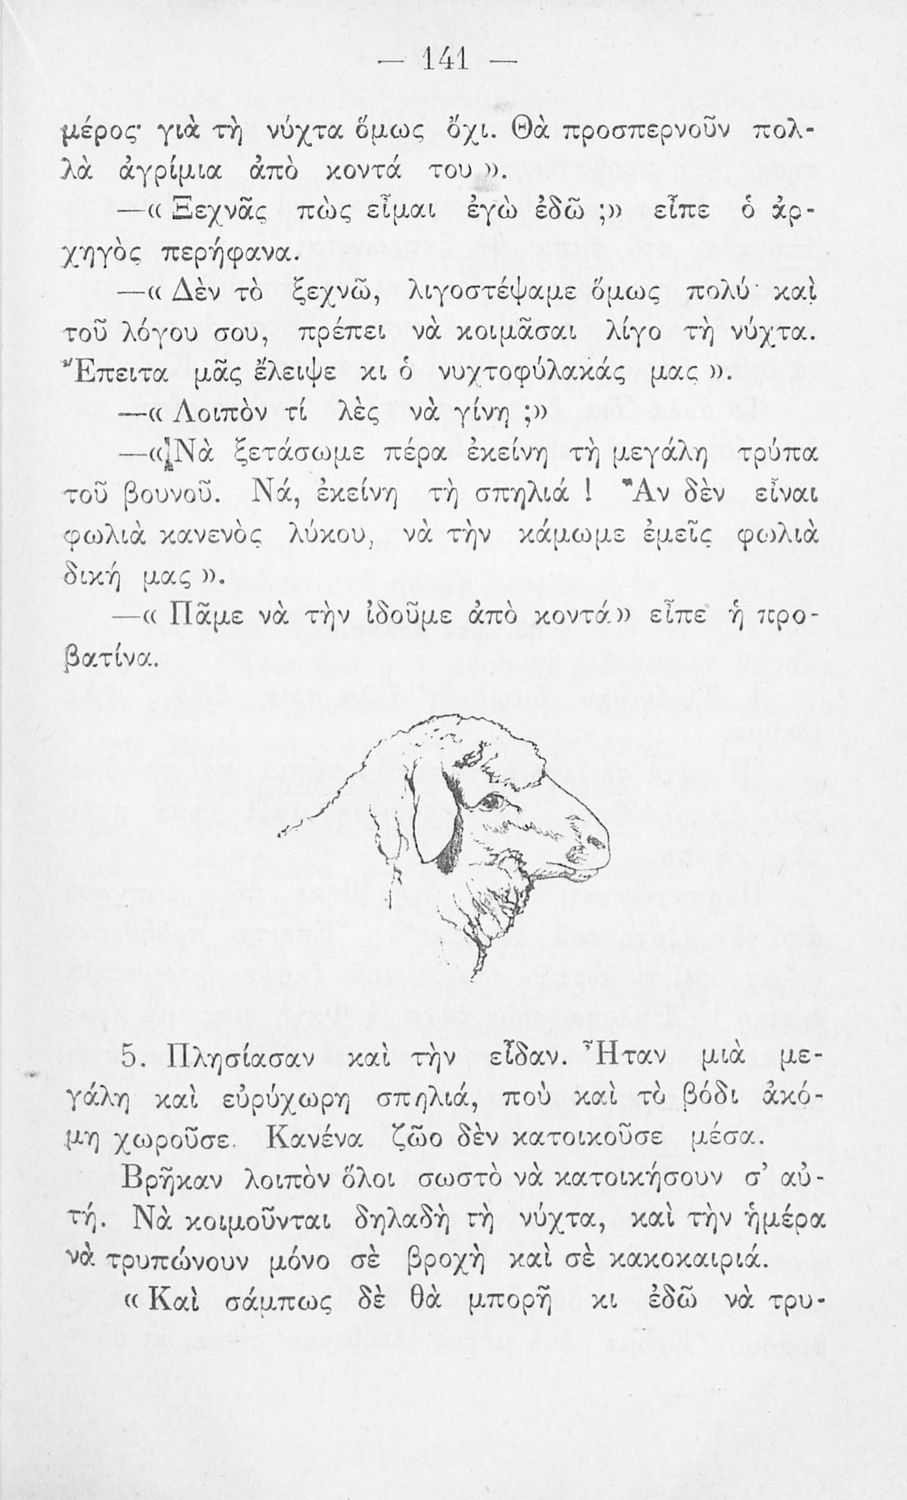 — 141 —
μέρος· γιὰ τὴ νύχτα ὅμως ὄχι. Θὰ προσπερνοῦν πολ-
λὰ ἀγρίμια ἀπὸ κοντά του ».
—« Ξεχνᾶς πὼς εἶμαι ἐγὼ ἐδῶ ;» εἶπε ὁ ἀρ-
χηγὸς περήφανα.
—« Δὲν τὸ ξεχνῶ, λιγοστέψαμε ὅμως πολύ· καὶ
τοῦ λόγου σου, πρέπει νὰ κοιμᾶσαι λίγο τὴ νύχτα.
Ἔπειτα μᾶς ἔλειψε κι ὁ νυχτοφύλακάς μας ».
—« Λοιπὸν τί λὲς νὰ γίνῃ ;»
—« Νὰ ξετάσωμε πέρα ἐκείνη τὴ μεγάλη τρύπα
τοῦ βουνοῦ. Νά, ἐκείνη τὴ σπηλιά ! Ἂν δὲν εἶναι
φωλιὰ κανενὸς λύκου, νὰ τὴν κάμωμε ἐμεῖς φωλιὰ
δική μας ».
—« Πᾶμε νὰ τὴν ἰδοῦμε ἀπὸ κοντά» εἶπε ἡ προ-
βατίνα.
5. Πλησίασαν καὶ τὴν εἶδαν. Ἦταν μιὰ με-
γάλη καὶ εὐρύχωρη σπηλιά, ποὺ καὶ τὸ βόδι ἀκό-
μη χωροῦσε. Κανένα ζῶο δὲν κατοικοῦσε μέσα.
Βρῆκαν λοιπὸν ὅλοι σωστὸ νὰ κατοικήσουν σ’ αὐ-
τή. Νὰ κοιμοῦνται δηλαδὴ τὴ νύχτα, καὶ τὴν ἡμέρα
νὰ τρυπώνουν μόνο σὲ βροχὴ καὶ σὲ κακοκαιριά.
« Καὶ σάμπως δὲ θὰ μπορῇ κι ἐδῶ νὰ τρυ-